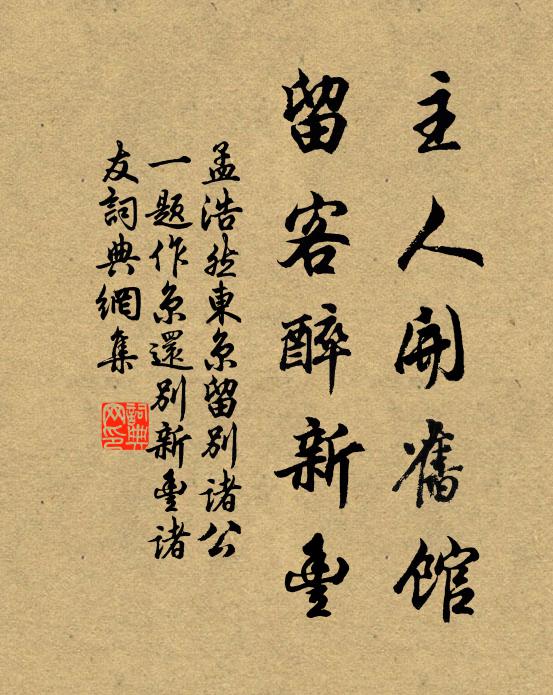 主人開舊館
留客醉新豐
孟浩然東京留別諸公
一題作京還別新豐諸
友詞典網集
詞典
网印